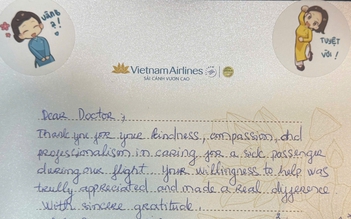 VÂNG Ạ!
TUYỆT VỜI!
Vietnam Airlines
SẢI CÁNH VƯƠN CAO
Dear Doctor,
Thank you for your kindness, compassion, and
professionalism in caring for a sick passenger
during our flight. Your willingness to help was
trully appreciated and made a real difference
With sincere gratitude.